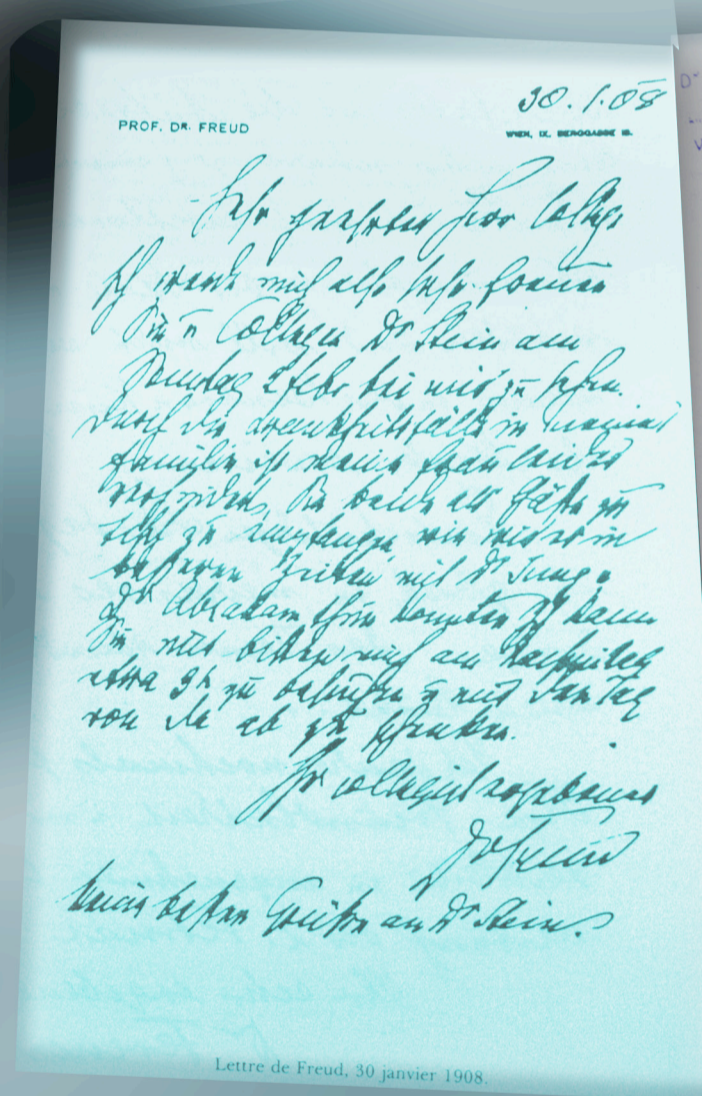 30.1.08
PROF. DR. FREUD
WIEN, IX. BERGGASSE 19.
Sehr geehrter Herr College
Ich werde mich also sehr freuen
Sie u Collegen Dr Stein am
Sonntag 2 Febr bei mir zu sehen.
Durch die Krankheitsfälle in meiner
Familie ist meine Frau leider
verhindert, Sie beide als Gäste zu
Tisch zu empfangen wie wir es in
besseren Zeiten mit Dr Jung u
Dr Abraham thun konnten Ich kann
Sie nur bitten mich am Nachmittag
etwa 3h zu besuchen u mir den Tag
von da ab zu schenken.
Ihr collegial ergebener
Dr Freud
Meine besten Grüße an Dr Stein.
Lettre de Freud, 30 janvier 1908.